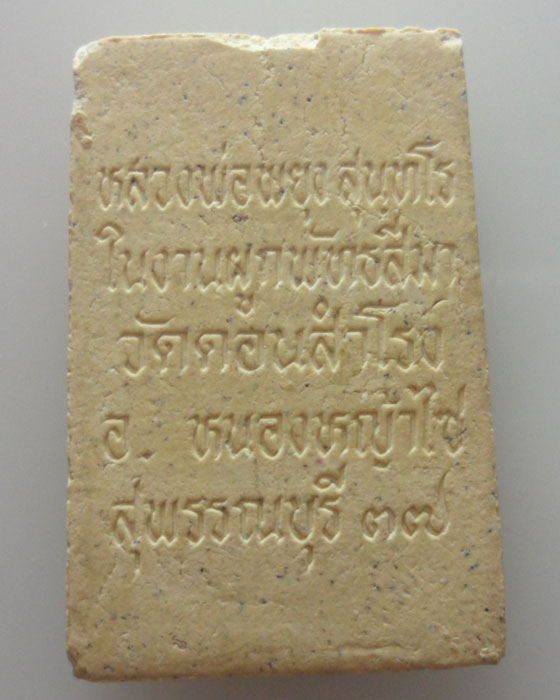 หลวงพ่อพยุง สุนฺทโร
ในงานผูกพัทธสีมา
วัดดอนสำโรง
อ. หนองหญ้าไซ
สุพรรณบุรี ๓๗